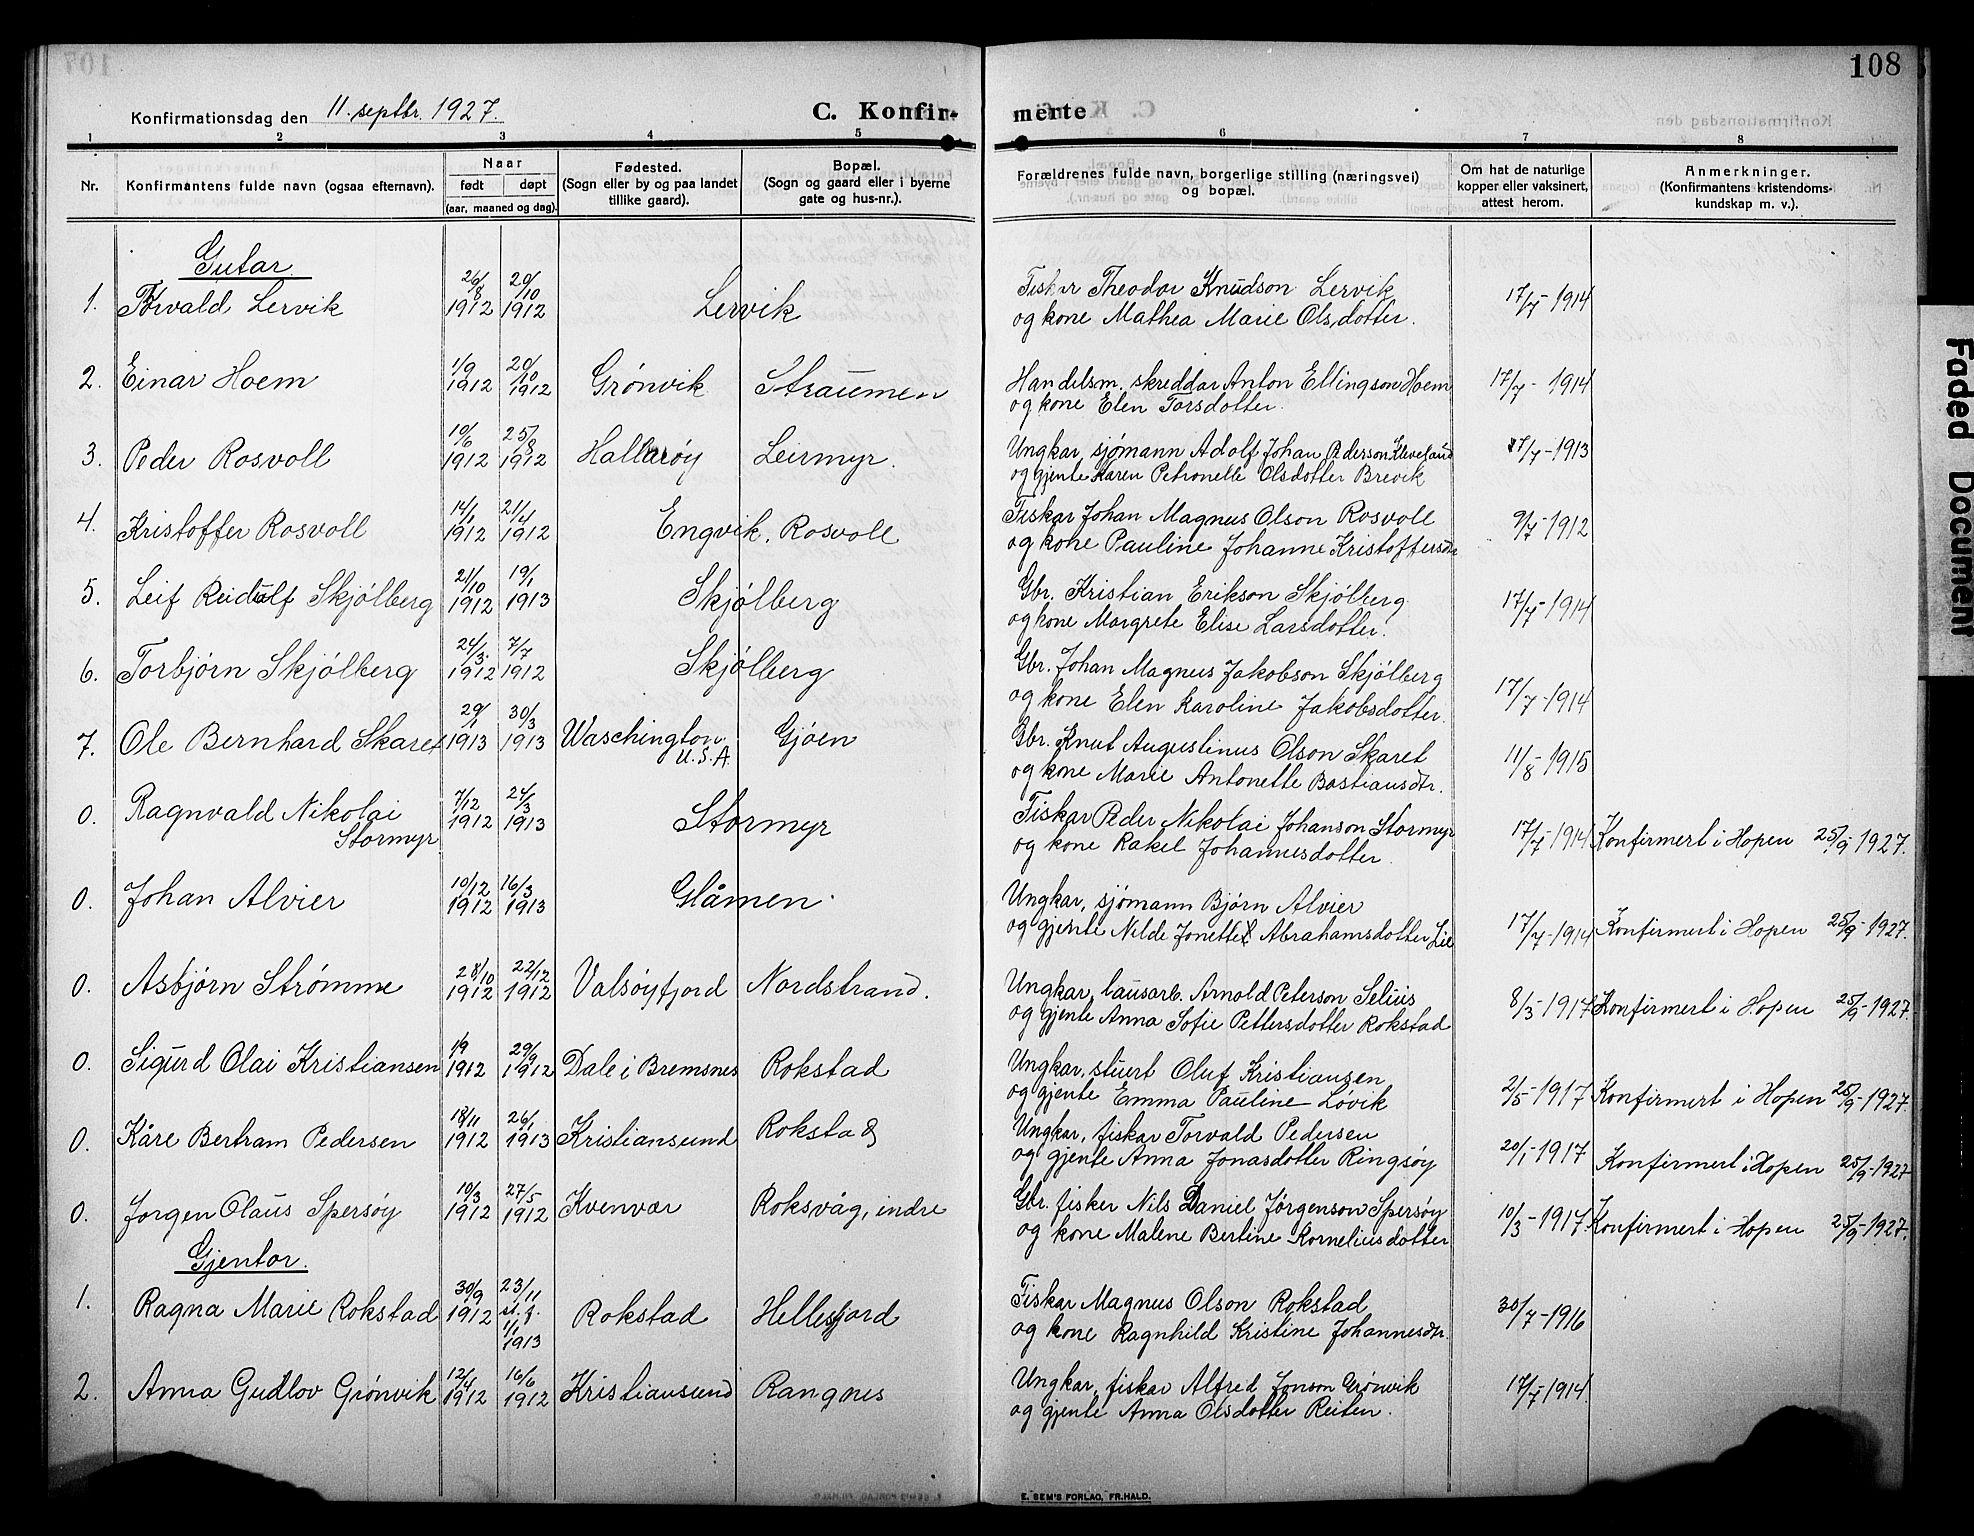 107
108
Konfirmationsdag den 11. septbr. 1927.
C. Konfirmerte
1 2 3 4 5 6 7 8
Nr.
Konfirmantens fulde navn (ogsaa efternavn).
Naar
født døpt
(aar, maaned og dag).
Fødested.
(Sogn eller by og paa landet
tillike gaard).
Bopæl.
(Sogn og gaard eller i byerne
gate og hus-nr.).
Forældrenes fulde navn, borgerlige stilling (næringsvei)
og bopæl.
Om hat de naturlige
kopper eller vaksinert,
attest herom.
Anmerkninger.
(Konfirmantens kristendoms-
kundskap m. v.).
Gutar
1. Torvald Lervik 26/8 1912 20/10 1912 Lervik
Fiskar Theodor Knudson Lervik
og kone Mathea Marie Olsdotter. 17/7-1914
2. Einar Hoem 1/9 1912 20/10 1912 Grönvik Straumen
Handelsm. skreddar Anton Ellingson Hoem
og kone Elen Torsdotter. 17/7-1914
3. Peder Rosvoll 10/6 1912 25/8 1912 Hallarøy Leirmyr.
Ungkar, sjømann Adolf Johan Pederson Kleveland
og gjente Karen Petronelle Olsdotter Brevik 17/7-1913
4. Kristoffer Rosvoll 14/1 1912 21/4 1912 Engvik, Rosvoll
Fiskar Johan Magnus Olson Rosvoll
og kone Pauline Johanne Kristoffersdtr 9/7-1912
5. Leif Reidulf Skjölberg 21/10 1912 19/1 1913 Skjölberg
Gbr. Kristian Erikson Skjölberg
og kone Margrete Elise Larsdotter. 17/7-1914
6. Torbjörn Skjölberg 24/3. 1912 7/7 1912 Skjölberg
Gbr. Johan Magnus Jakobson Skjölberg
og kone Elen Karoline Jakobsdotter. 17/7-1914
7. Ole Bernhard Skaret 29/1 1913 30/3 1913 Waschington U.S.A. Gjöen
Gbr. Knut Augustinus Olson Skaret
og kone Marie Antonette Bastiansdtr. 11/8-1915
0. Ragnvald Nikolai
Stormyr 7/12 1912 24/3 1913 Stormyr
Fiskar Peder Nikolai Johanson Stormyr
og kone Rakel Johannesdotter. 17/7-1914 Konfirmert i Hopen 25/9-1927.
0. Johan Alvier 10/12 1912 16/3 1913 Glåmen.
Ungkar, sjömann Björn Alvier
og gjente Nilde Jonette Abrahamsdotter Lie 17/7-1914 Konfirmert i Hopen 25/9-1927.
0. Asbjörn Strömme 28/10 1912 22/12 1912 Valsöyfjord Nordstrand.
Ungkar, lausarb. Arnold Peterson Selius
og gjente Anna Sofie Pettersdotter Rokstad 8/3-1917 Konfirmert i Hopen 25/9-1927.
0. Sigurd Olai Kristiansen 1/9 1912 29/9 1912 Dale i Bremsnes Rokstad
Ungkar, stuert Oluf Kristiansen
og gjente Emma Pauline Lövik 2/5-1917 Konfirmert i Hopen 25/9-1927.
0. Kåre Bertram Pedersen 18/11 1912 26/1 1913 Kristiansund Rokstad
Ungkar, fiskar Torvald Pedersen
og gjente Anna Jonasdotter Ringsöy 20/1-1917 Konfirmert i Hopen 25/9-1927
0. Jörgen Olaus Spersöy 10/3 1912 27/5 1912 Kvenvær Roksvåg, indre
Gbr. fisker Nils Daniel Jörgenson Spersöy
og kone Malene Bertine Korneliusdotter 10/3-1917. Konfirmert i Hopen 25/9-1927.
Gjentor.
1. Ragna Marie Rokstad 30/9 1912 23/11 st. f. 1/1 1913 Rokstad Hellesfjord
Fiskar Magnus Olson Rokstad
og kone Ragnhild Kristine Johannesdtr. 30/7-1916
2. Anna Gudlov Grönvik 12/4 1912 16/6 1912 Kristiansund Rangnes
Ungkar, fiskar Alfred Jonson Grönvik
og gjente Anna Olsdotter Reiten. 17/7-1914.
E. SEM'S FORLAG, FR.HALD.
Faded Document